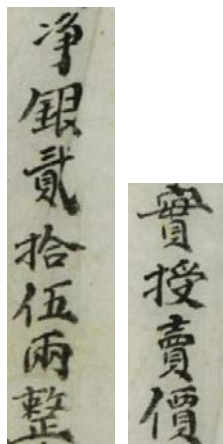 實授賣價
净銀貳拾伍兩整